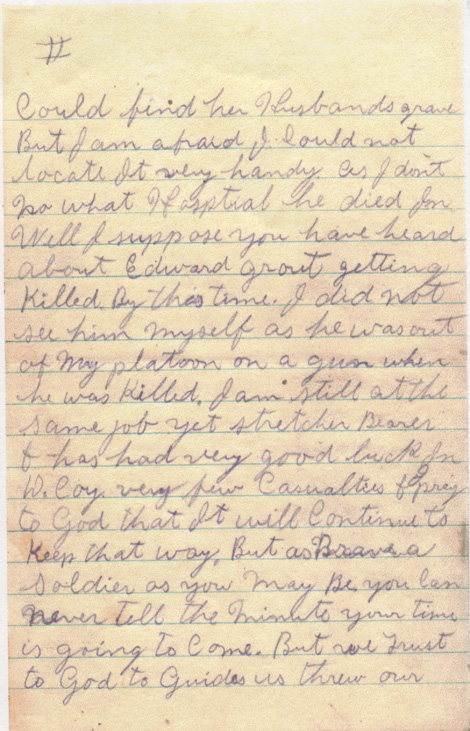 II
Could find her Husbands grave
But I am afraid I Could not
locate It very handy. as I dont
no what Hosptial he died In
Well I suppose you have heard
about Edward grout getting
Killed. By this time. I did not
see him Myself as he was out
of My platoon on a gun when
he was Killed. I am still at the
same job yet stretcher Bearer
& has had very good luck In
D. Coy. very few Casualties & I prey
to God that It will Continue to
Keep that way. But as Brave a
soldier as you May Be. you Can
never tell the Minute your time
is going to Come. But we Trust
to God to Guide us threw our